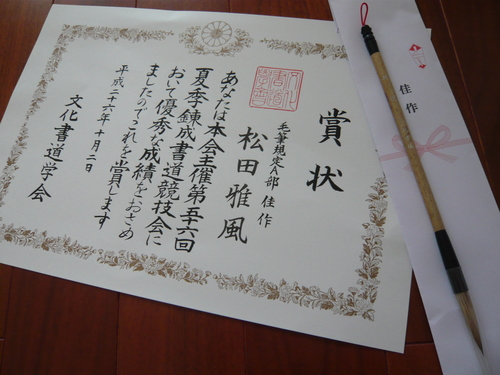 賞状
毛筆規定A部 佳作
松田雅風
あなたは本会主催第五十六回
夏季錬成書道競技会に
おいて優秀な成績をおさめ
ましたのでこれを賞します
平成二十六年十月二日
文化書道学会
佳作